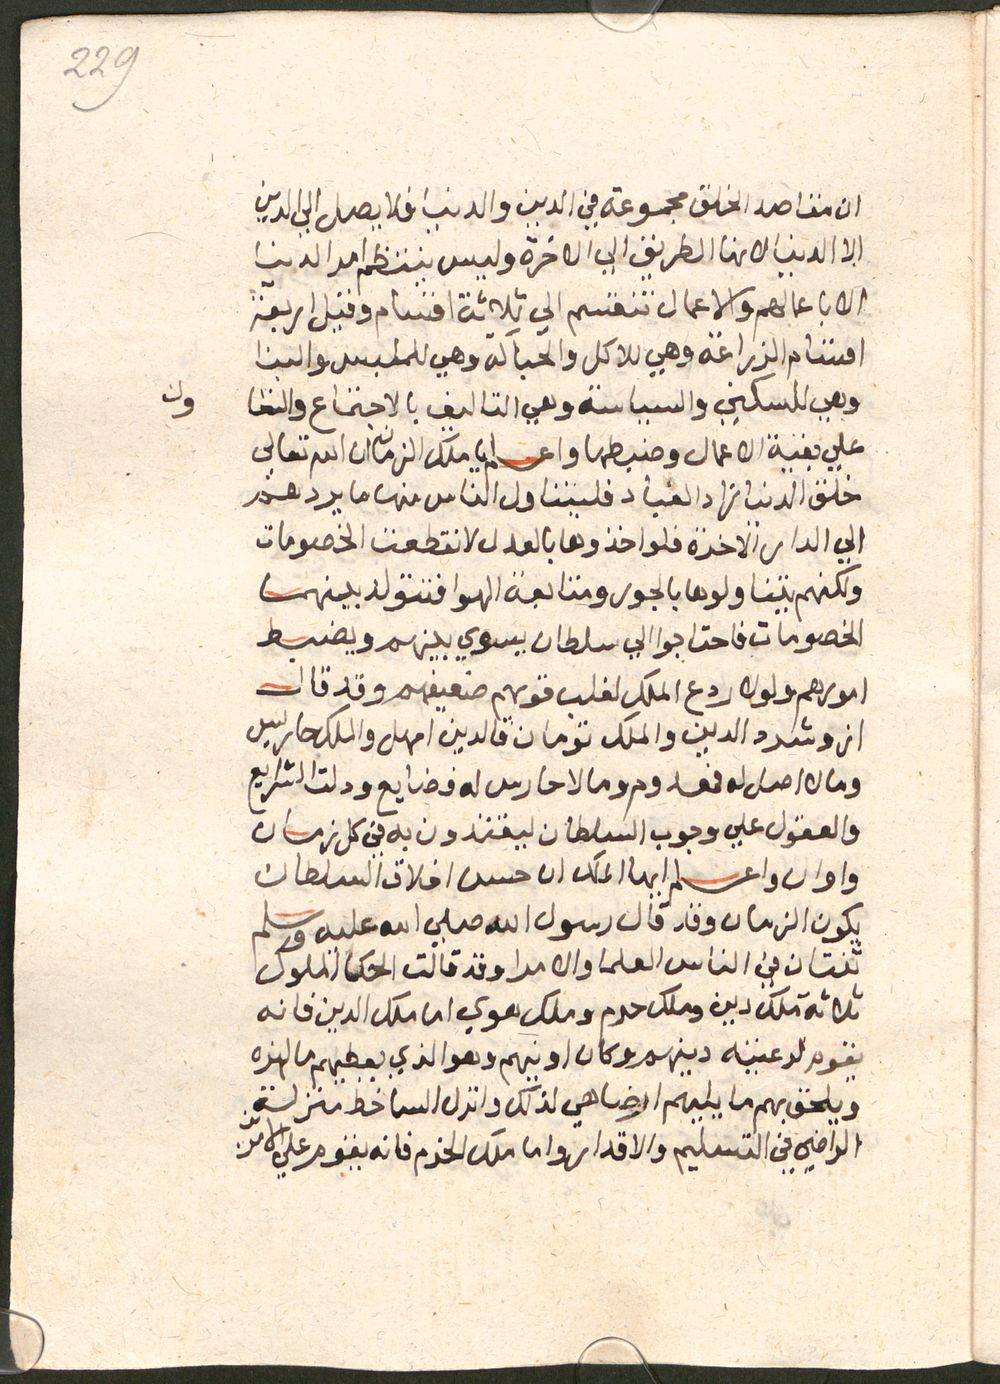 229
ان مقاصد الخلق مجموعة في الدين والدنيا فلا يصل الي الدين
الا الدنيا لانها الطريق الي الاخرة وليس ينتظم امر الدنيا
الا باعمالهم والاعمال تنقسم الي ثلاثة اقسام وقيل اربعة
اقسام الزراعة وهي للاكل والحياكة وهي للملبس والبنا
وهي للسكني والسياسة وهي التاليف بالاجتماع والتعا
ون
علي بقية الاعمال وضبطها واعلم يا ملك الزمان ان الله تعالي
خلق الدنيا زاد العباد فليتناول الناس منها ما يردهم
الي الدار الاخرة فلو اخذوها بالعدل لانقطعت الخصومات
ولكنهم يتناولوها بالجور ومتابعة الهوا فتتولد بينهما
الخصومات فاحتاجوا الي سلطان يسوي بينهم ويضبط
امورهم ولولا ردع الملك لغلب قويهم ضعيفهم وقد قال
ازدشير الدين والملك توءمان فالدين اصل والملك حارس
وما لا اصل له فمعدوم وما لا حارس له فضايع ودلت الشرايع
والعقول علي وجوب السلطان ليقتدون به في كل زمان
واوان واعلم ايها الملك ان حسن اخلاق السلطان
يكون الزمان وقد قال رسول الله صلي الله عليه وسلم
ثنتان في الناس العلما والامرا وقد قالت الحكما الملوك
ثلاثة ملك دين وملك حزم وملك هوي اما ملك الدين فانه
يقوم لرعيته دينهم وكان ادينهم وهو الذي يعطيهم ما لهم
ويلحق بهم ما يليهم لذلك وانزل الساخط منزلة
الراضي في التسليم والاقدار واما ملك الحزم فانه يقوم علي الامر